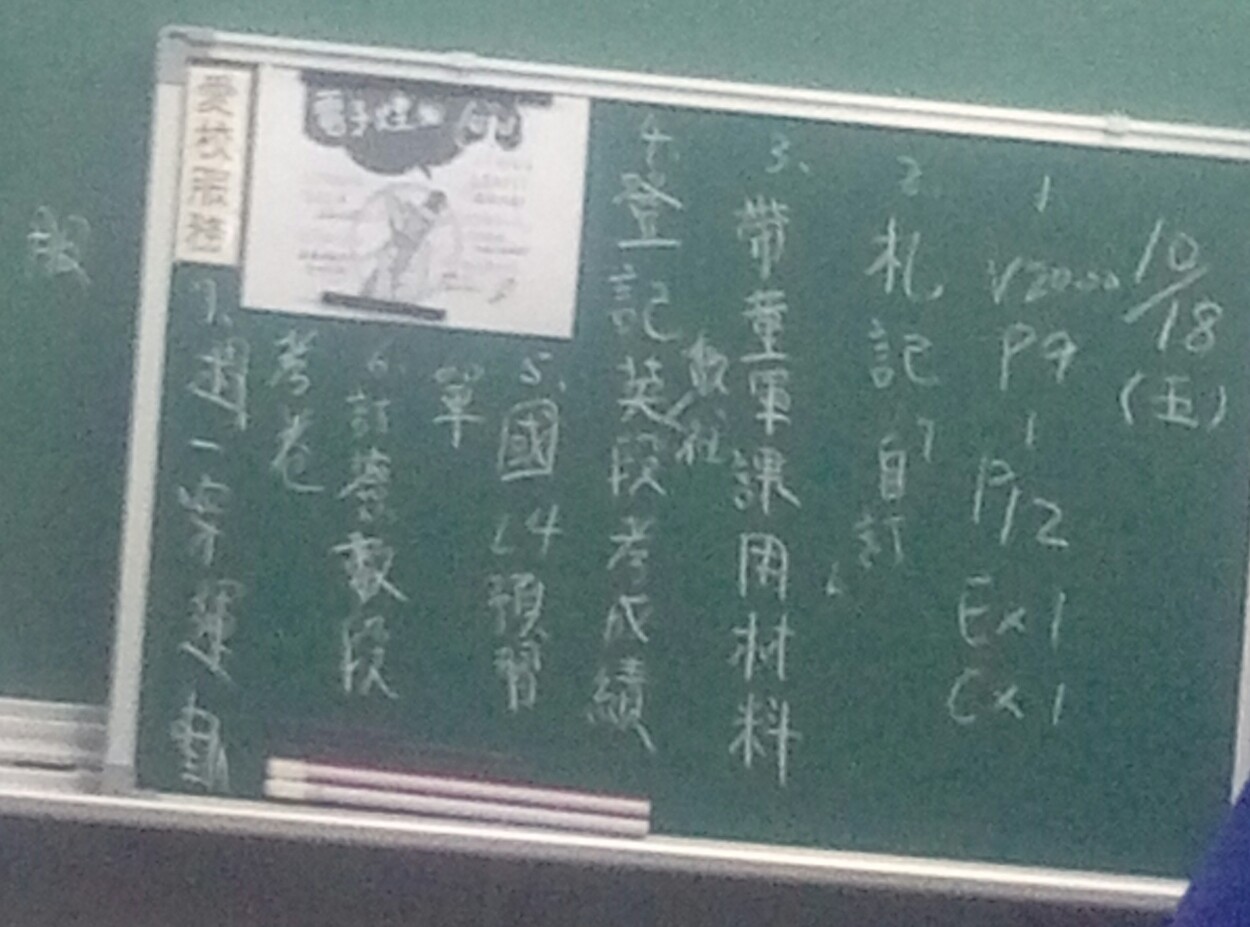 10/18
(五)
1.
P9
P12
Ex1
Cx1
2.札記自訂
3.帶童軍課用材料
4.登記英段考成績
數社
5.國L4預習
單
6.訂簽數段
考卷
7.週一穿運動
愛校服務
電子